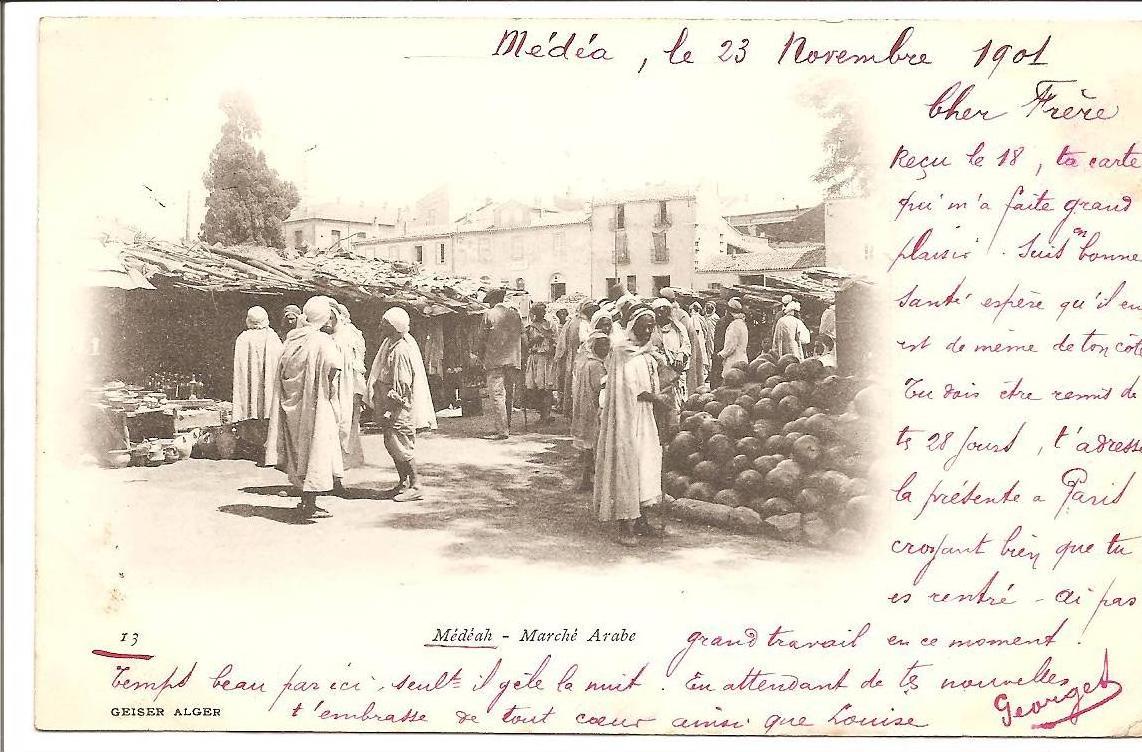 Médéa, le 23 Novembre 1901
Cher Frère
Reçu le 18, ta carte
qui m'a faite grand
plaisir. Suis en bonne
Santé espère qu'il en
est de même de ton côté
Tu dois être remis de
ts 28 Jours, t'adresse
la présente a Paris
croyant bien que tu
es rentré - ai pas
grand travail en ce moment.
13
Médéah - Marché Arabe
Temps beau par ici, seult il gèle la nuit. En attendant de ts nouvelles
GEISER ALGER
t'embrasse de tout cœur ainsi que Louise
Georges